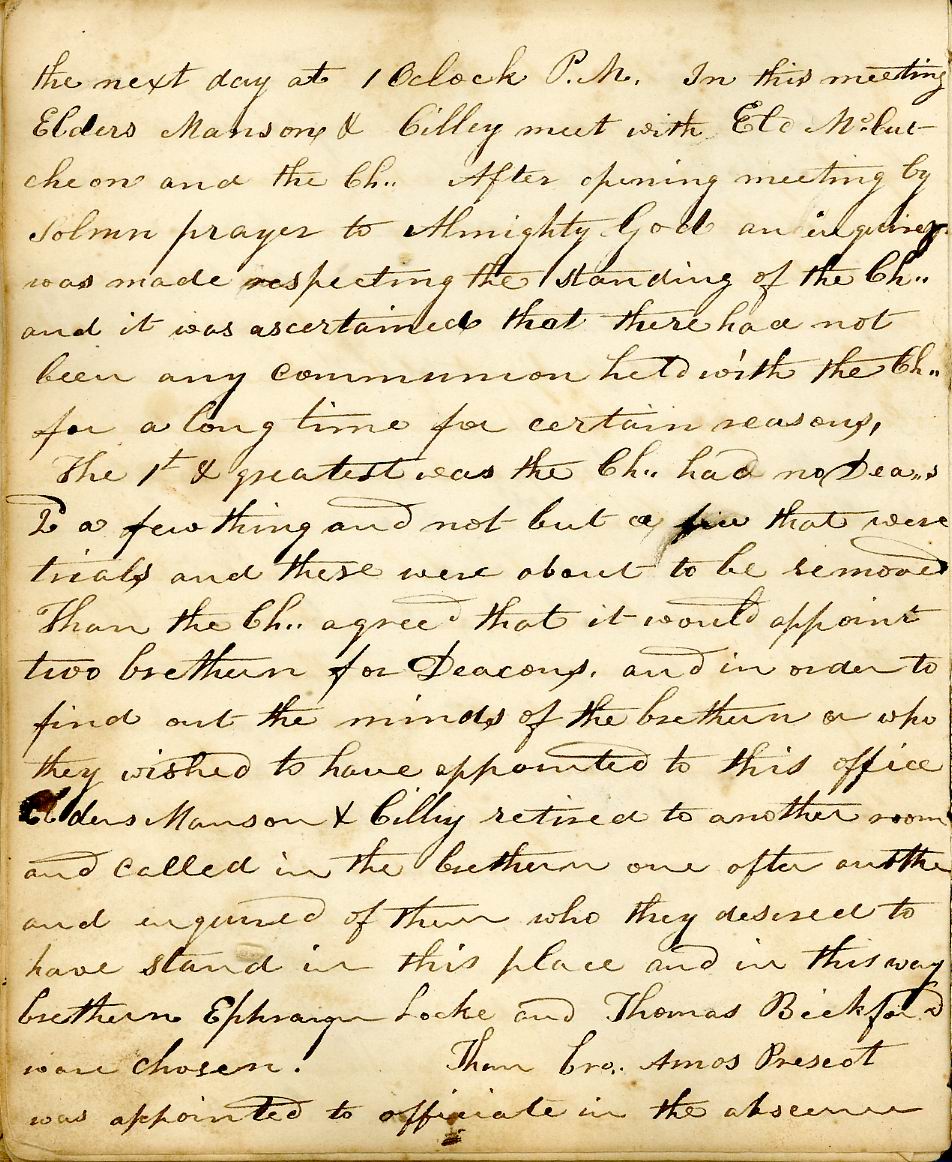 the next day at 1 Oclock P.M. In this meeting
Elders Manson & Cilley meet with Eld McCut-
cheon and the Ch.. After opening meeting by
Solmn prayer to Almighty God an inquirey
was made respecting the standing of the Ch..
and it was ascertained that there had not
been any communion held with the Ch..
for a long time for certain reasons,
The 1st & greatest was the Ch.. had no Dea..s
2 a few thing and not but a few that were
trials and these were about to be removed
Than the Ch.. agreed that it would appoint
two brethern for Deacons. and in order to
find out the minds of the brethern or who
they wished to have appointed to this office
Elders Manson & Cilley retired to another room
and called in the brethern one after anothe
and enquired of them who they desired to
have stand in this place and in this way
brethern Ephraigm Locke and Thomas Bickford
ware chosen. Than bro.. Amos Prescot
was appointed to officiate in the absence